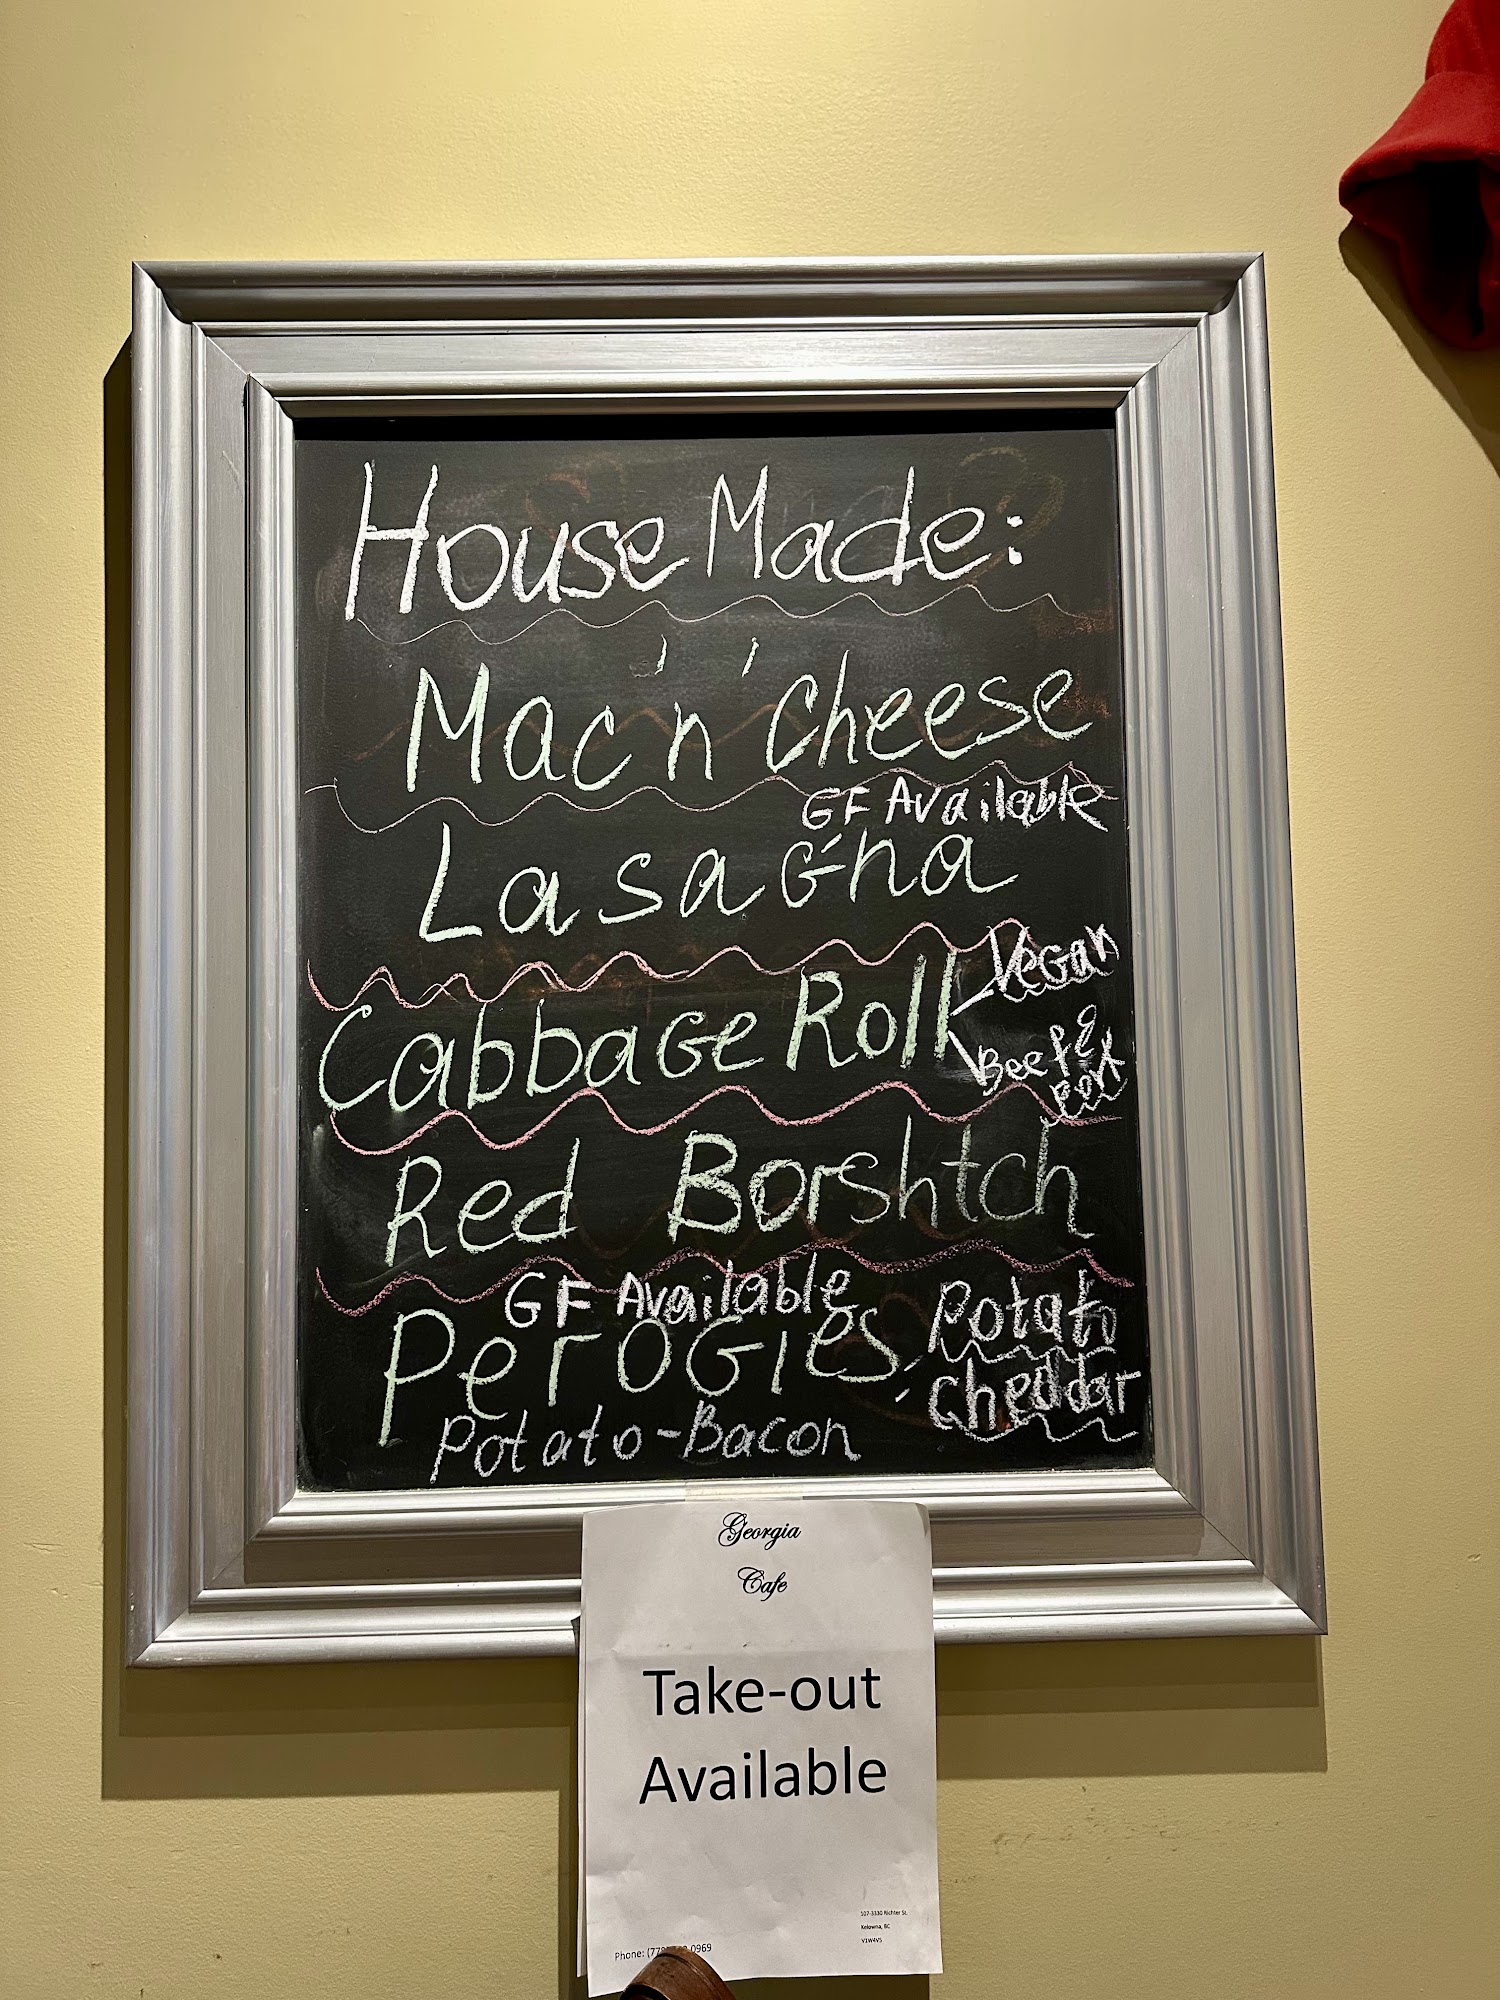 House Made:
Mac 'n' Cheese
GF Available
Lasagna
Cabbage Roll
Vegan
Beef &
Pork
Red Borshtch
GF Available
Perogies,
Potato
Cheddar
Potato-Bacon
Georgia
Cafe
Take-out
Available
107-3330 Richter St.
Kelowna, BC
V1W4V5
Phone: (77 0969